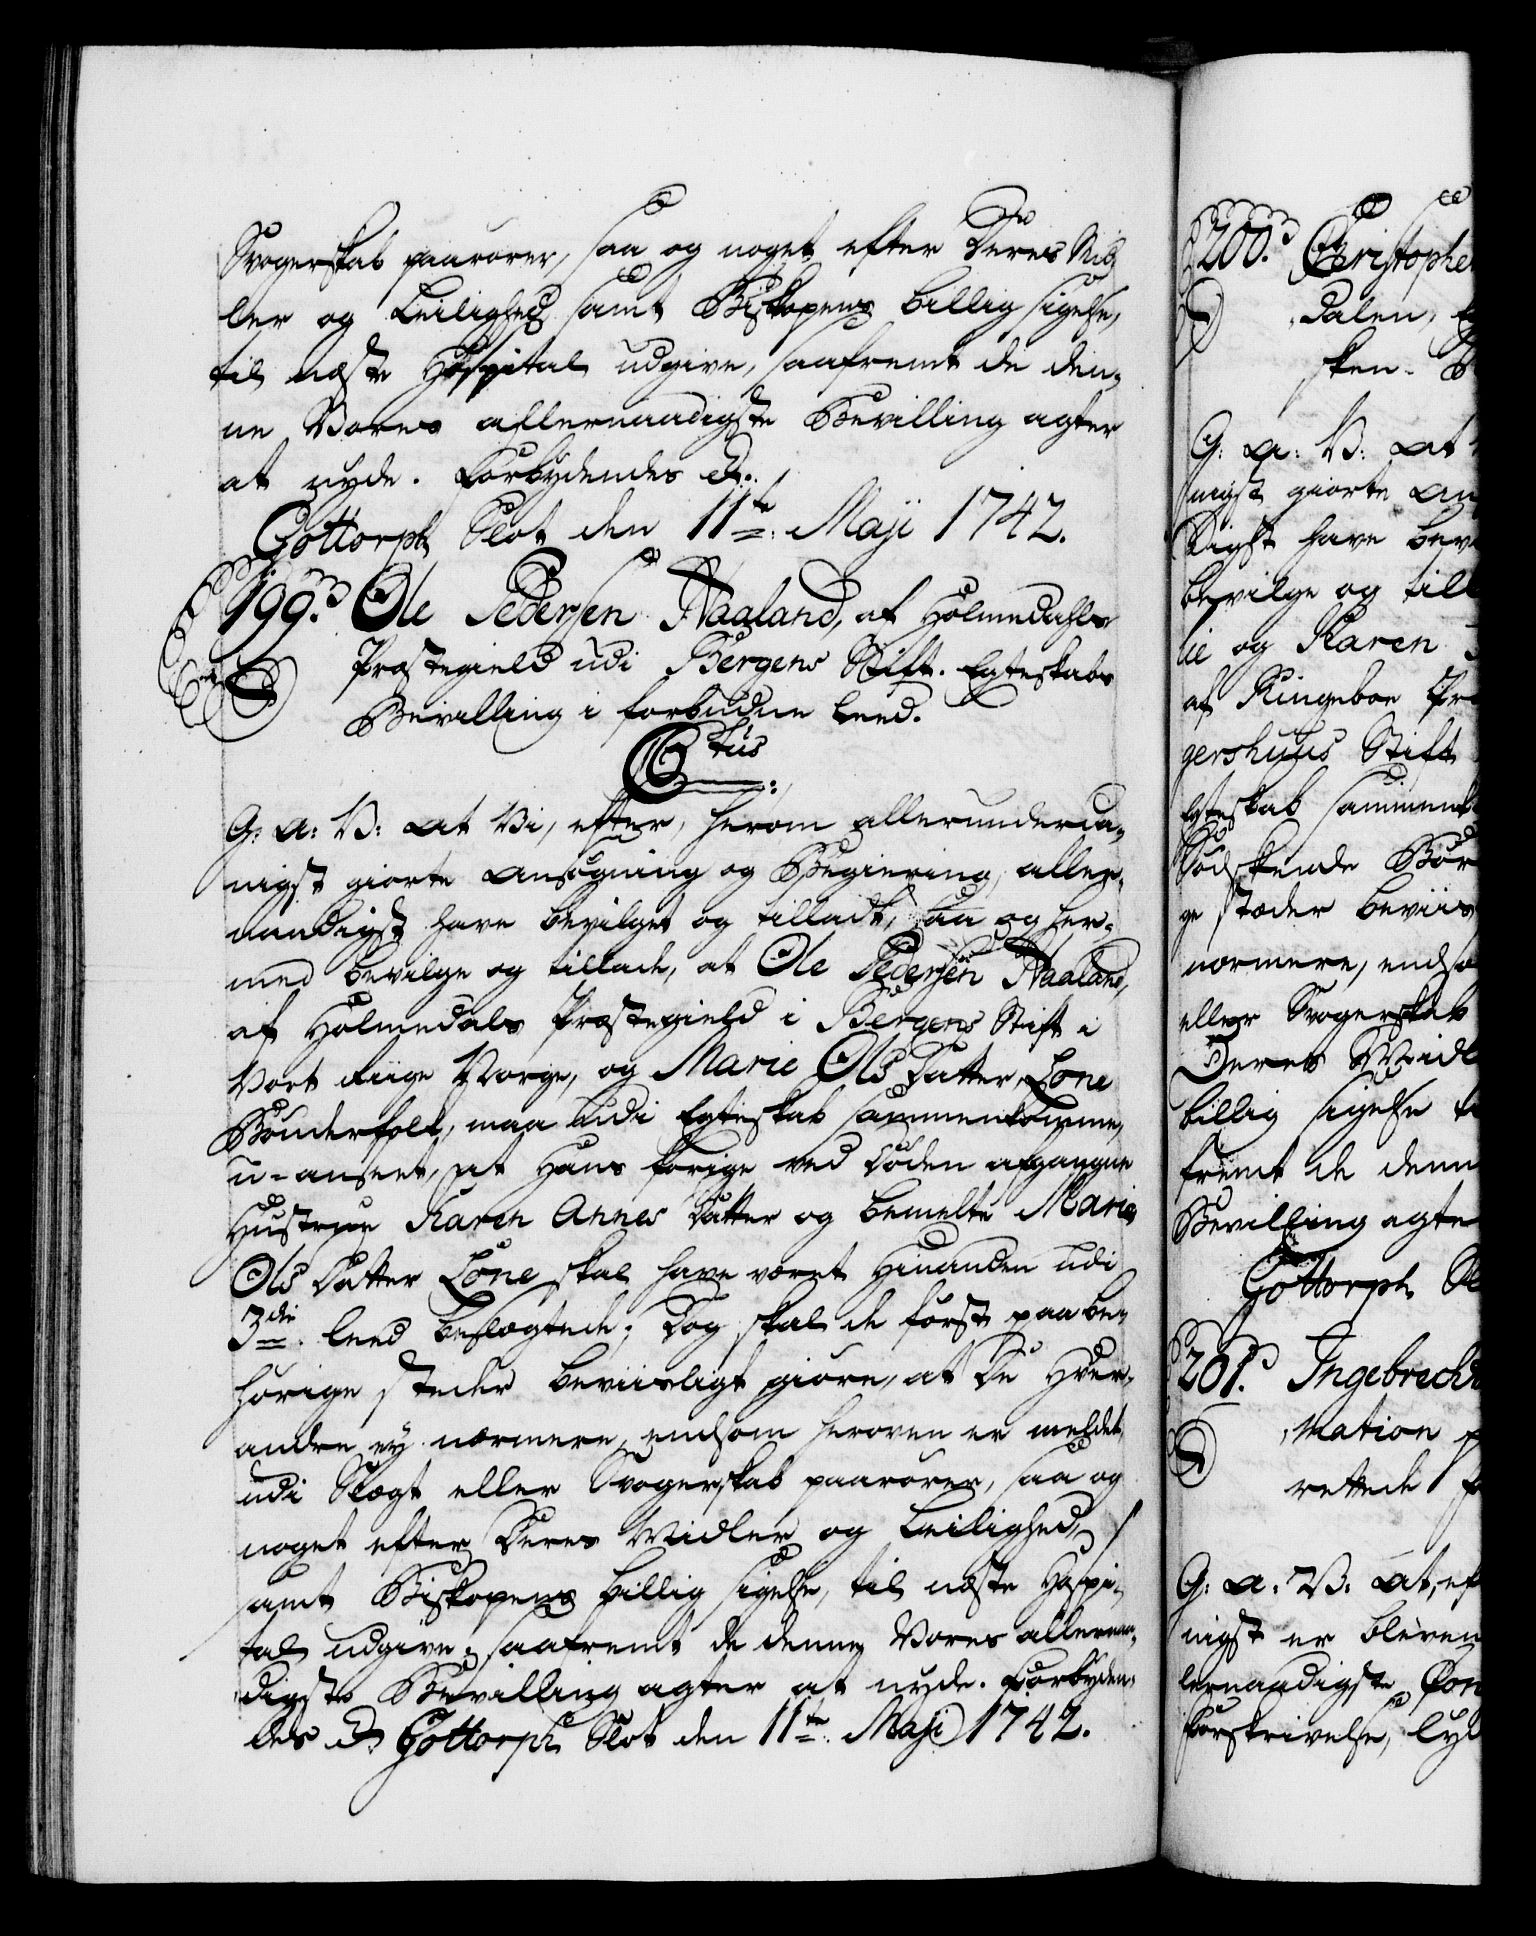 Svogerskab paarører, saa og noget efter Deres Mid-
ler og Leilighed samt Biskopens billig sigelse,
til næste Hospital udgive, saafremt de den-
ne Vores allernaadigste Bevilling agter
at nyde. Forbydendes &.
Gottorph Slot den 11te Maji 1742.
199. Ole Pedersen Naaland, af Holmedahls
Præstegield udi Bergens Stift. Egteskabs
Bevilling i forbudne Leed.
C 6tus
G: A: V: At Vi, efter, herom allerunderda-
nigst giorte Ansøgning og Begiering, aller-
naadigst have bevilget og tilladt, saa og her-
med bevilge og tillade, at Ole Pedersen Naaland,
af Holmedals Præstegield i Bergens Stift i
Vort Riige Norge, og Marie Ols Datter Lone
Bønderfolk, maa udi Egteskab sammenkomme,
u-anseet, at Hans forige ved Døden afgangne
Hustrue Karen Annes Datter og bemelte Marie
Ols Datter Lone skal have været Hinanden udi
3die Leed beslægtede; Dog skal de først paa be-
hørige steder beviisligt giøre, at De Hver-
andre ey nærmere, endsom heroven er meldet
udi Slægt eller Svogerskab paarører, saa og
noget efter Deres Midler og Leilighed,
samt Biskopens billig sigelse, til næste Hospi-
tal udgive; saafremt de denne Vores allernaa-
digste Bevilling agter at nyde. Forbyden-
des & Gottorph Slot den 11te Maji 1742.
200. Christophe
Dalen, E
sken. B
G: A: V: At
nigst giorte An
digst have bevi
bevilge og till
lie og Karen
af Ringeboe Præ
gershuus Stift
Egteskab sammenk
Sødskende Bør
ge stæder beviis
nærmere, endso
eller Svogerskab
Deres Midl
billig sigelse t
fremt de denn
Bevilling agte
Gottorph Sl
201. Ingebrecht
mation p
rettede fo
G: A: V: At, ef
nigst er bleven
lernaadigste Con
Forskrivelse, lyd